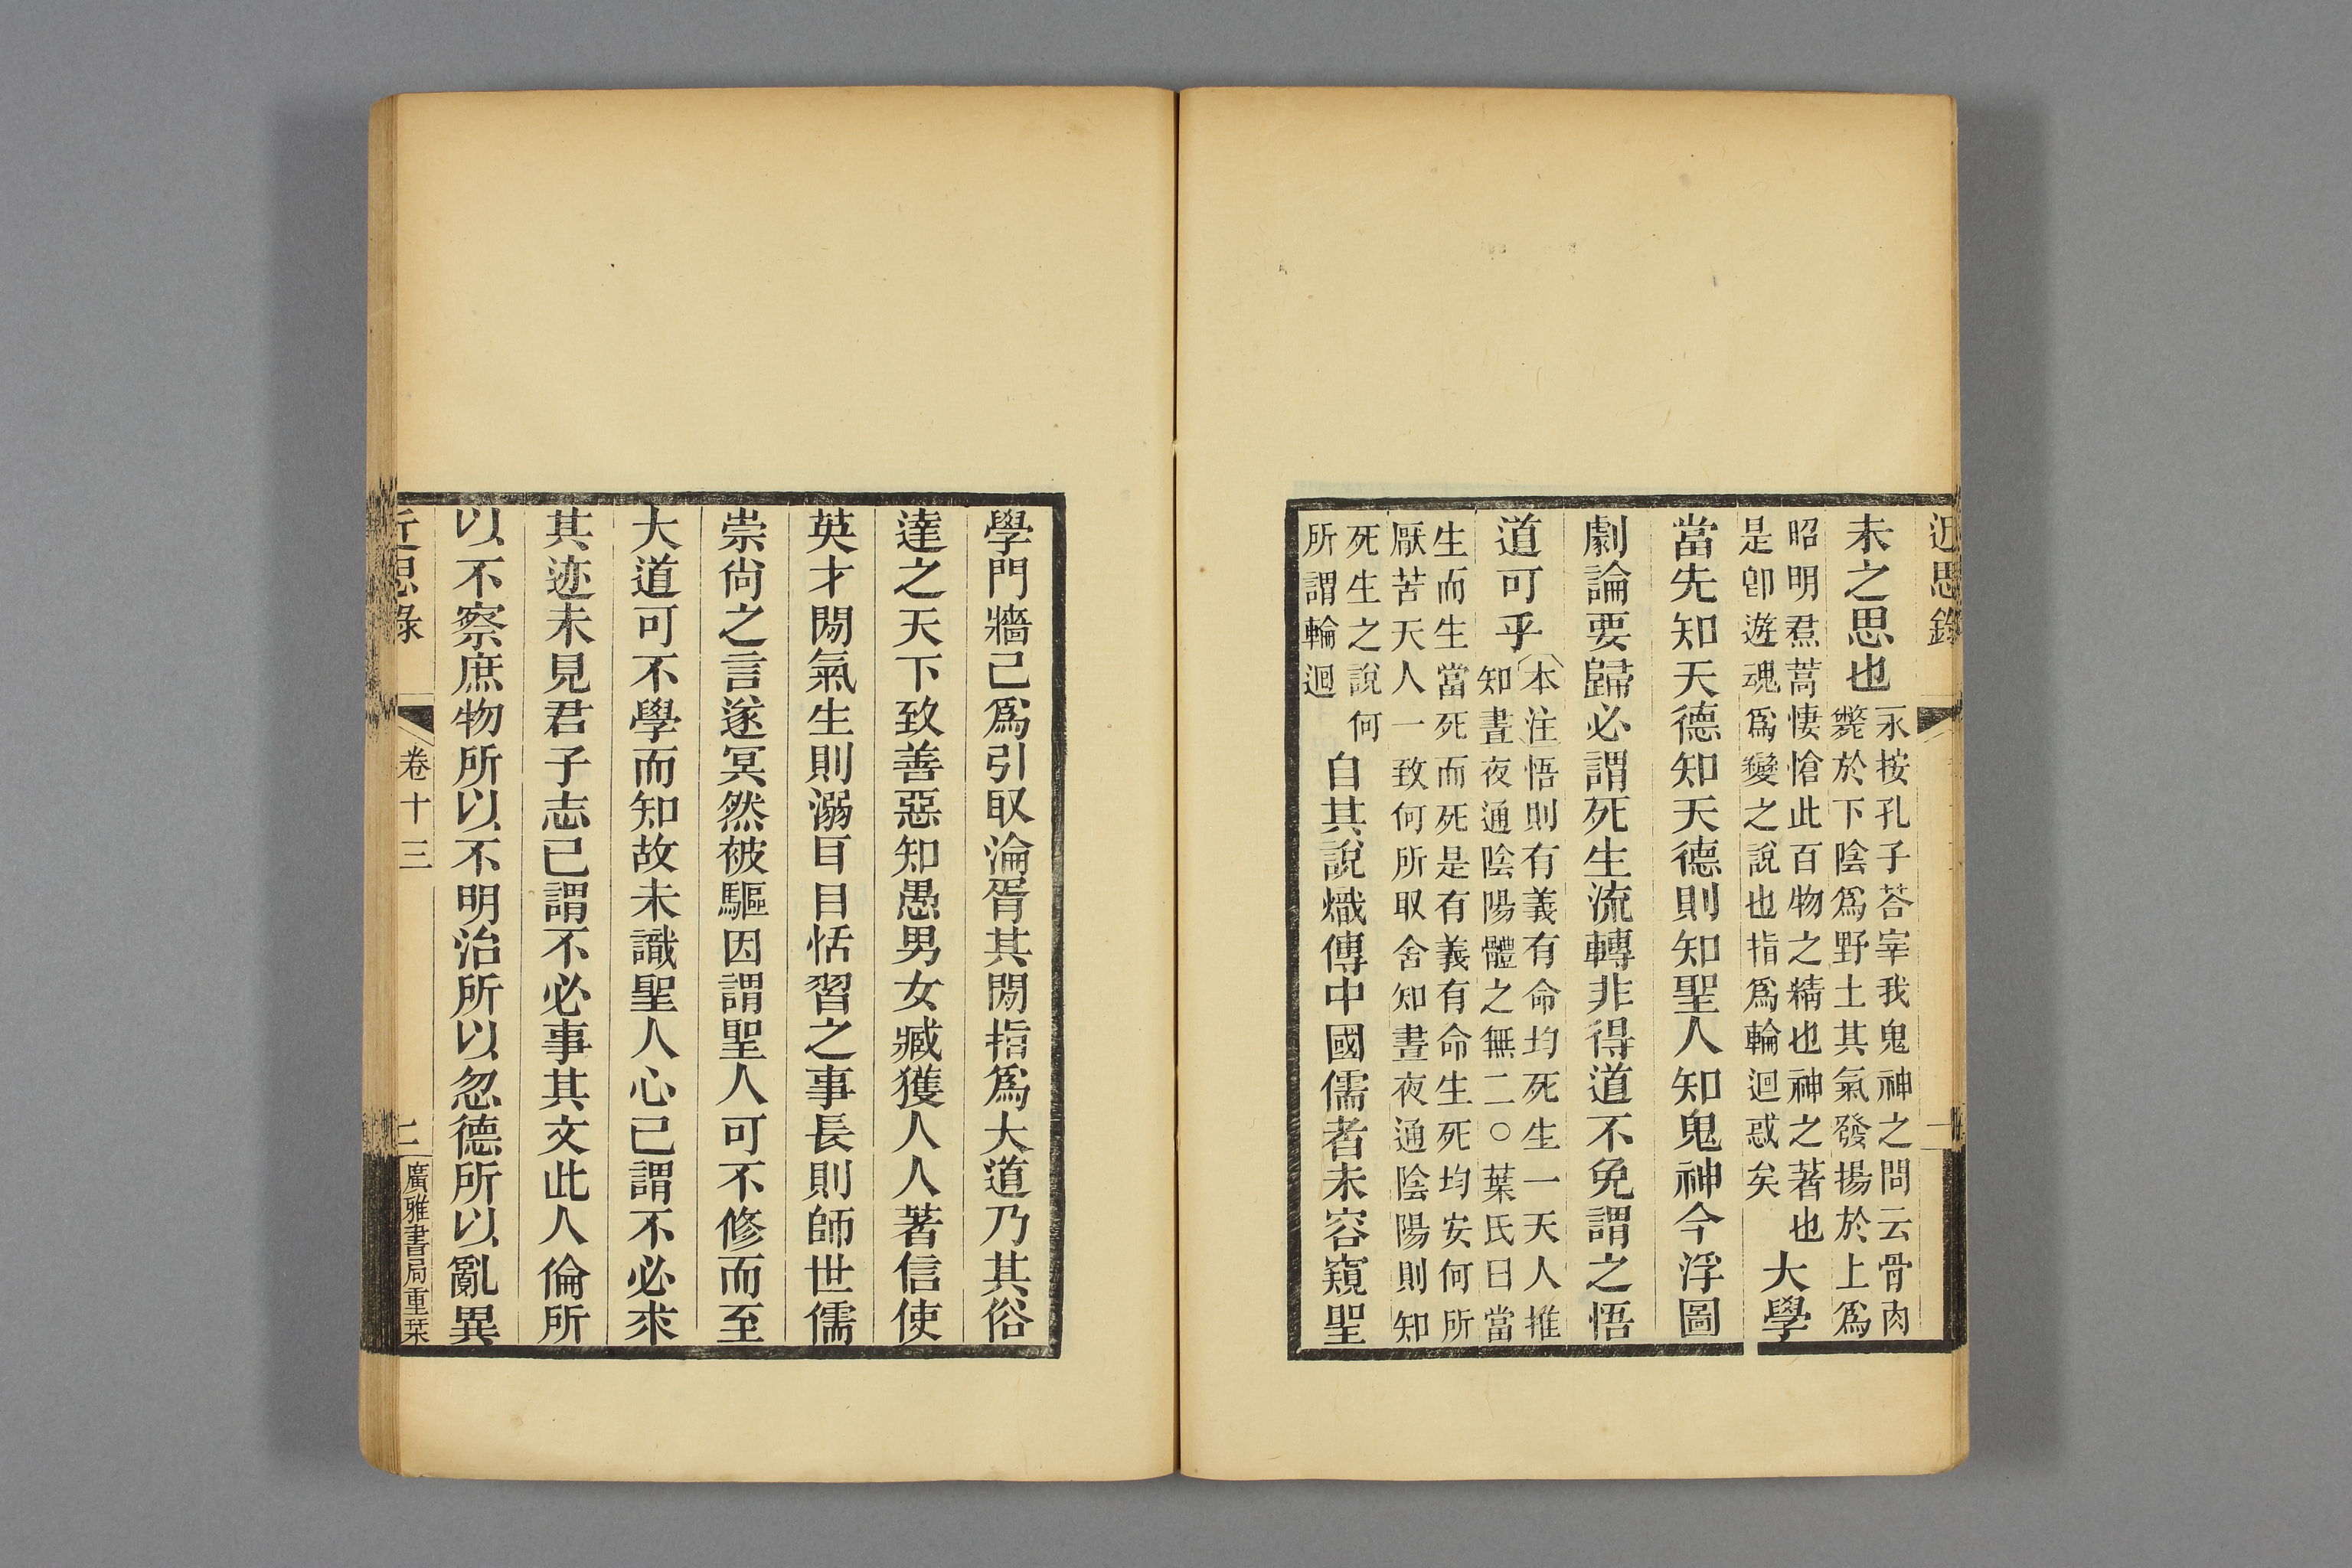 近思錄
未之思也
永按孔子荅宰我鬼神之問云骨肉
斃於下陰爲野土其氣發揚於上爲
昭明焄蒿悽愴此百物之精也神之著也
是卽遊魂爲變之說也指爲輪迴惑矣
大學
當先知天德知天德則知聖人知鬼神今浮圖
劇論要歸必謂死生流轉非得道不免謂之悟
道可乎
本注悟則有義有命均死生一天人推
知晝夜通陰陽體之無二○葉氏曰當
生而生當死而死是有義有命生死均安何所
厭苦天人一致何所取舍知晝夜通陰陽則知
死生之說何
所謂輪迴
自其說熾傳中國儒者未容窺聖
學門牆已爲引取淪胥其閒指爲大道乃其俗
達之天下致善惡知愚男女臧獲人人著信使
英才閒氣生則溺耳目恬習之事長則師世儒
崇尙之言遂冥然被驅因謂聖人可不修而至
大道可不學而知故未識聖人心已謂不必求
其迹未見君子志已謂不必事其文此人倫所
以不察庶物所以不明治所以忽德所以亂異
近思錄
卷十三
二
廣雅書局重栞